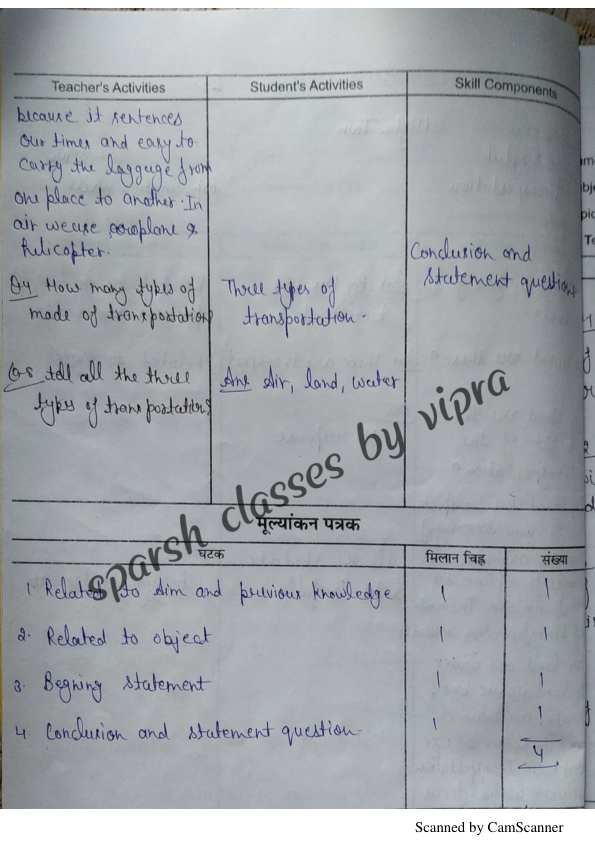 Teacher's Activities Student's Activities Skill Components
because it sentences
our times and easy to
carry the laggage from
one place to another. In
air we use aeroplane &
helicopter.
Conclusion and
statement question
Q4 How many types of
made of transportation
Three types of
transportation.
Q5 tell all the three
types of transportation?
Ans Air, land, water
sparsh classes by vipra
मूल्यांकन पत्रक
घटक मिलान चिह्न संख्या
1. Related to Aim and previous knowledge 1 1
2. Related to object 1 1
3. Begning statement 1 1
4. Conclusion and statement question. 1 1
4
Scanned by CamScanner